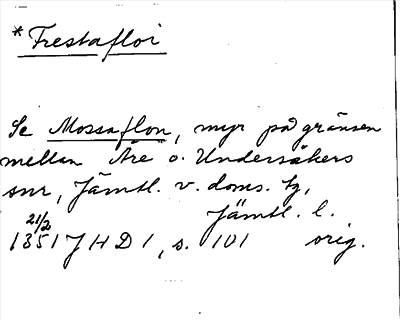 *Frestafloi
Se Mossaflon, myr på gränsen
mellan Åre o. Undersåkers
snr, Jämtl. v. doms. tg,
Jämtl. l.
21/2
1351 J H D 1, s. 101 orig.